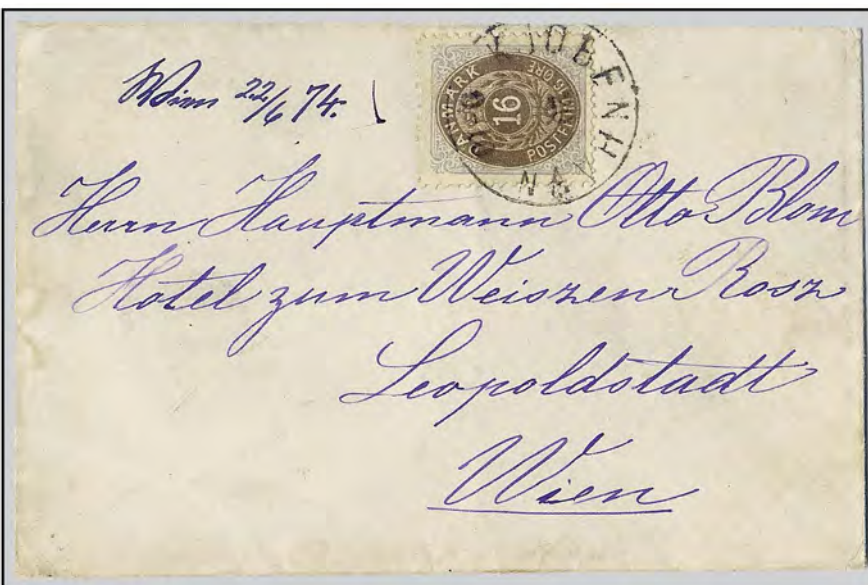 Wien 22/6 74.
KJOBENHAVN
DANMARK
POSTFRIM. 16 ØRE
16
Herrn Hauptmann Otto Blom
Hotel zum Weiszen Rosz
Leopoldstadt
Wien